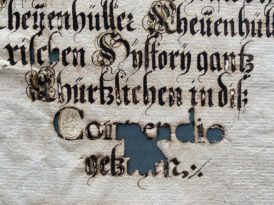 heüenhüller Kheüenhül
rischen Hÿstorÿ gantz
khürtzlichen in diß
Compendio